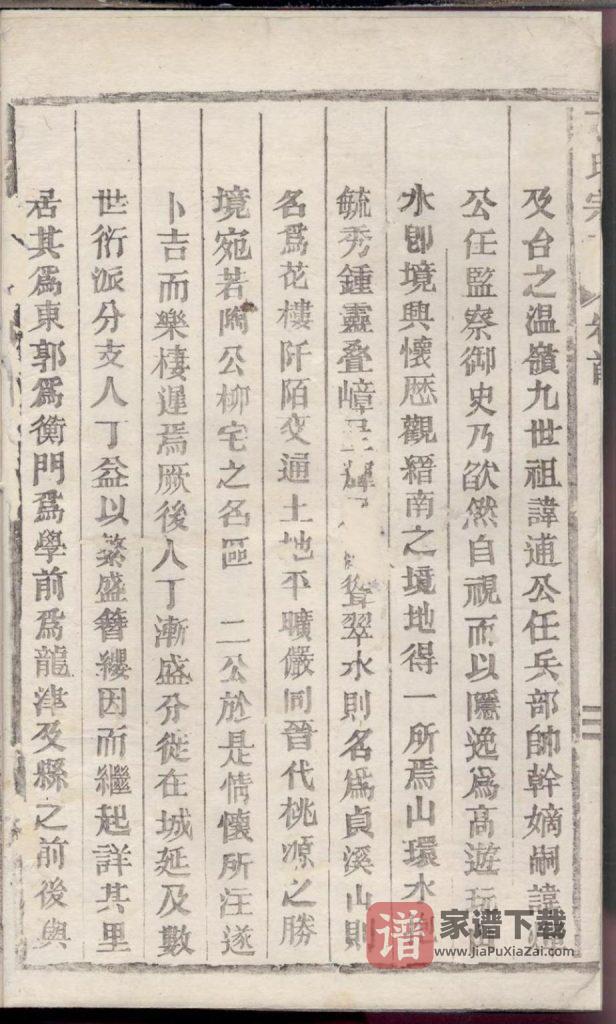 氏宗 卷首
二
及台之温嶺九世祖諱逋公任兵部帥幹嫡嗣諱
公任監察御史乃欲然自視而以隱逸為高遊玩
水即境興懷歷觀縉南之境地得一所焉山環水抱
毓秀鍾靈叠嶂 聳翠水則名為貞溪山則
名為花樓阡陌交通土地平曠儼同晉代桃源之勝
境宛若陶公柳宅之名區 二公於是情懷所注遂
卜吉而樂棲遲焉厥後人丁漸盛分徙在城延及數
世衍派分支人丁益以繁盛簪纓因而繼起詳其里
居其為東郭為衡門為學前為龍津及縣之前後與
谱 家谱下载
www.JiaPuXiaZai.com